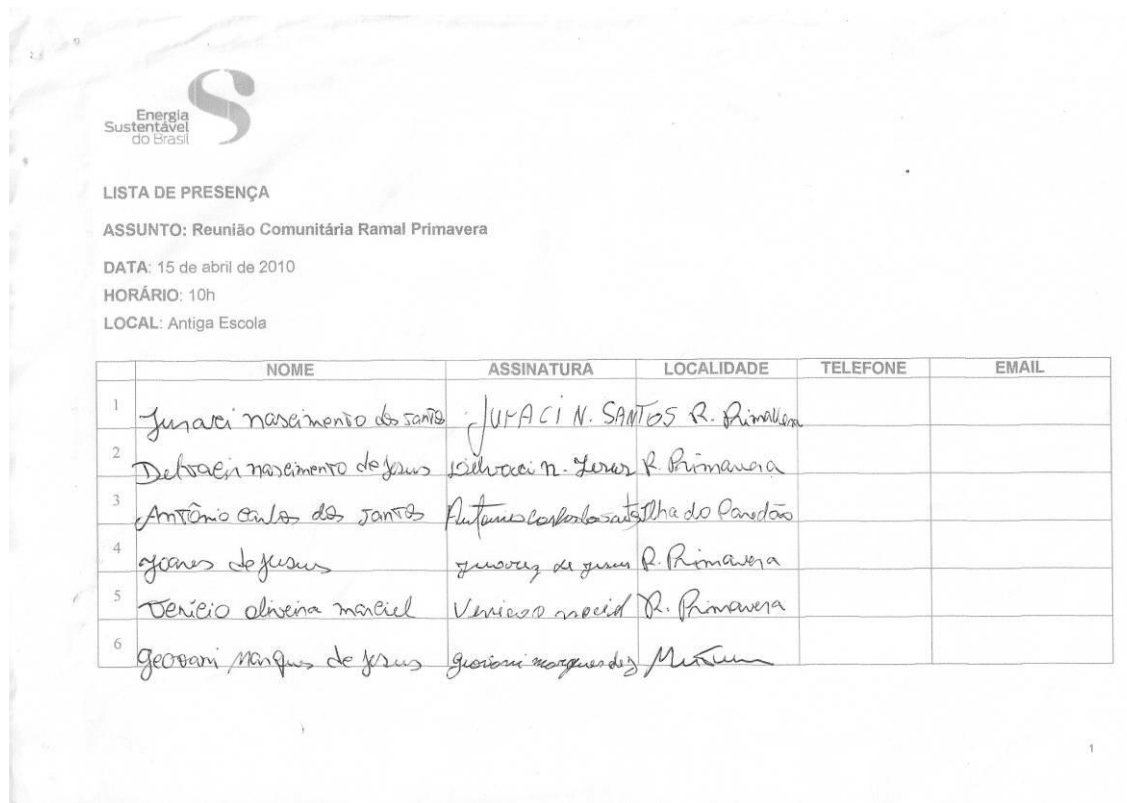 Energia
Sustentável
do Brasil
LISTA DE PRESENÇA
ASSUNTO: Reunião Comunitária Ramal Primavera
DATA: 15 de abril de 2010
HORÁRIO: 10h
LOCAL: Antiga Escola
NOME ASSINATURA LOCALIDADE TELEFONE EMAIL
1 Juraci nascimento dos santos JURACI N. SANTOS R. Primavera
2 nascimento de Jesus n. Jesus R. Primavera
3 Antônio Carlos dos santos Antonio Carlos dos santos Ilha do Paredão
4 de Jesus de Jesus R. Primavera
5 Venicio oliveira maciel Venicio maciel R. Primavera
6 Geovani Marques de Jesus geovani marques de j
1